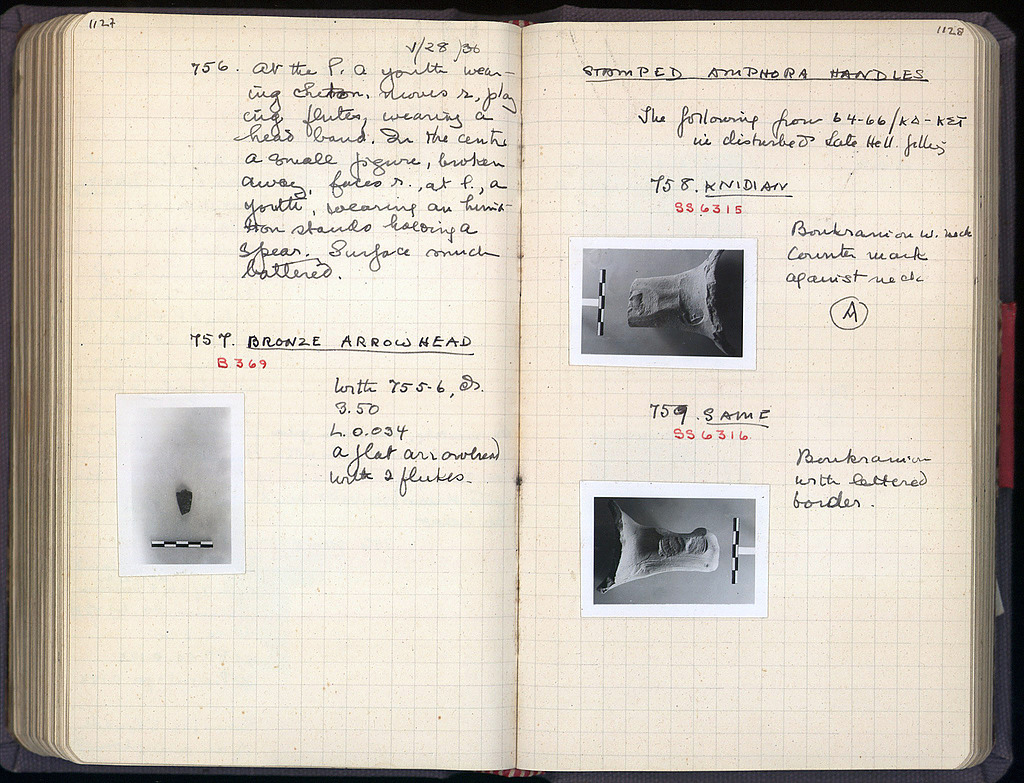 1127
V/28/36
756. At the l. a youth wear-
ing chiton, moves r., play
ing flutes, wearing a
head band. In the centre
a small figure, broken
away, faces r., at l., a
youth, wearing an himat-
ion stands holding a
spear. Surface much
battered.
757. BRONZE ARROWHEAD
B 369
With 755-6, 
3.50
L. 0.034
a flat arrowhead
with 2 flukes.
1128
STAMPED AMPHORA HANDLES
The following from 64-66/ΚΔ-ΚΣΤ
in disturbed Late Hell. filling
758. KNIDIAN
SS 6315
Boukranion w. neck
Counter mark
against neck
A
759. SAME
SS 6316
Boukranion
with lettered
border.